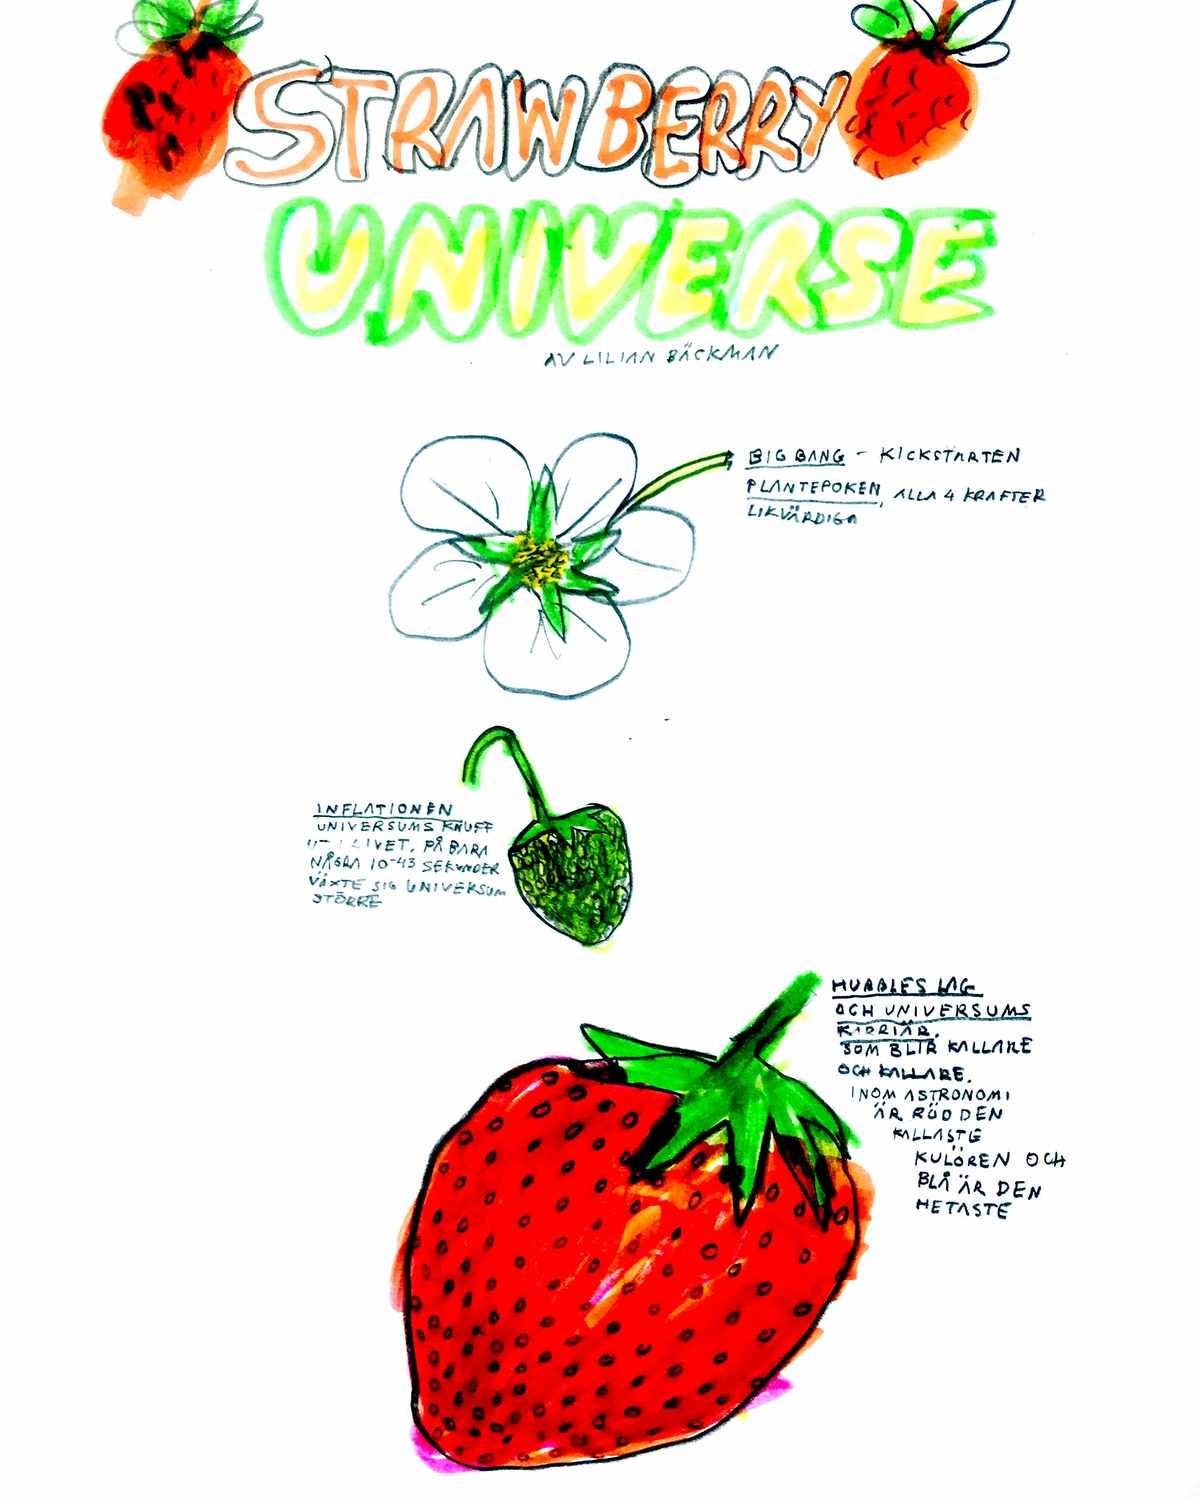 STRAWBERRY
UNIVERSE
AV LILIAN BÄCKMAN
BIG BANG - KICKSTARTEN
PLANTEPOKEN, ALLA 4 KRAFTER
LIKVÄRDIGA
INFLATIONEN
UNIVERSUMS KNUFF
LIVET, PÅ BARA
NÅGRA 10-43 SEKUNDER
VÄXTE SIG UNIVERSUM
STÖRRE
HUBBLES LAG
OCH UNIVERSUMS
KARRIÄR,
SOM BLIR KALLARE
OCH KALLARE.
INOM ASTRONOMI
ÄR RÖD DEN
KALLASTE
KULÖREN OCH
BLÅ ÄR DEN
HETASTE